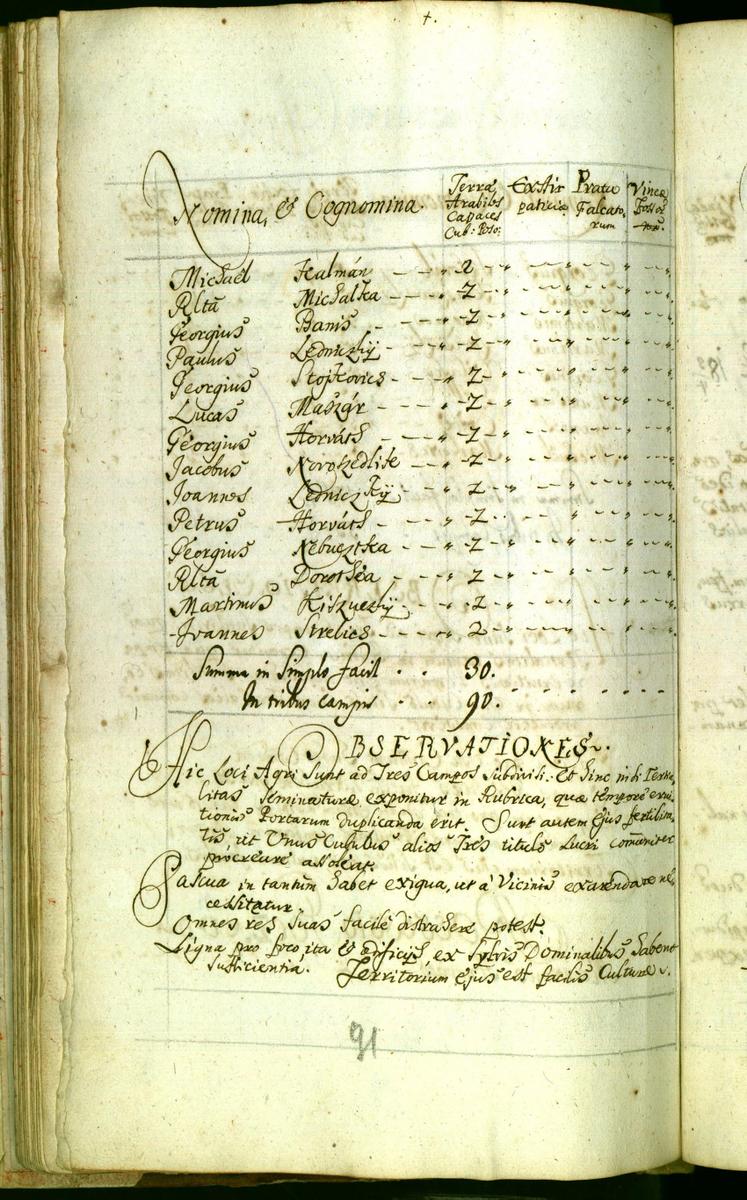 Nomina, & Cognomina. Terræ Arabiles Capaces Cub: Poso: Exstirpatitiæ Pratu Falcatorum Vinea Fossor
Michael Kalmán 2
Rlta Michalka 2
Georgius Banis 2
Paulus Ledniczky 2
Georgius Stojkovics 2
Lucas Maszár 2
Georgius Horváth 2
Jacobus Novoszedlik 2
Joannes Ledniczky 2
Petrus Horváth 2
Georgius Nebusztka 2
Rlta Dorothea 2
Martinus Kiszuczky 2
Joannes Strelics 2
Summa in Simplo facit 30.
In tribus campis 90.
OBSERVATIONES.
Hic Loci Agri Sunt ad Tres Campos Subdivisi: Et hinc
litas Seminaturæ exponitur in Rubrica, quæ tempore erui
tionis Portarum duplicanda erit. Sunt autem Ejus fertilita
tis, ut Unus Cubulus alios Tres tituls Lucri comuniter
procreare assoleat.
Pascua in tantum habet exigua, ut a Vicinis exarendare ne
cessitatur.
Omnes res Suas facile distrahere potest.
Ligna pro foco ita & ædificijs, ex Sylvis Dominalibus habent
Sufficientia. Territorium Ejus est facilis Culturæ.
91